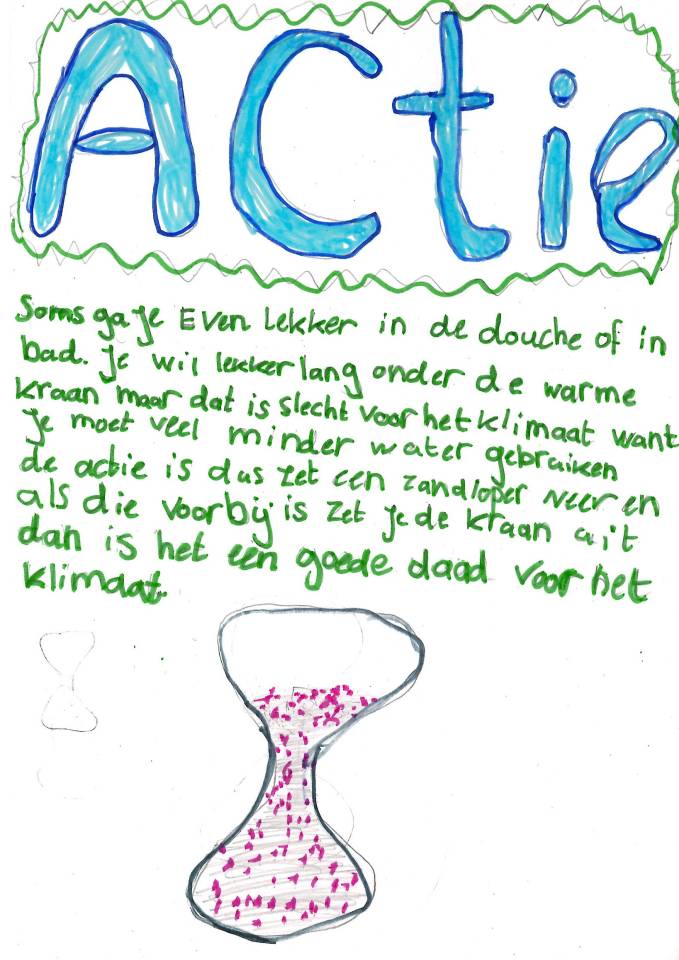 ACtie
Soms ga je Even lekker in de douche of in
bad. je wil lekker lang onder de warme
kraan maar dat is slecht voor het klimaat want
je moet veel minder water gebruiken
de actie is dus zet een zandloper neer en
als die voorbij is zet je de kraan uit
dan is het een goede daad voor het
klimaat.